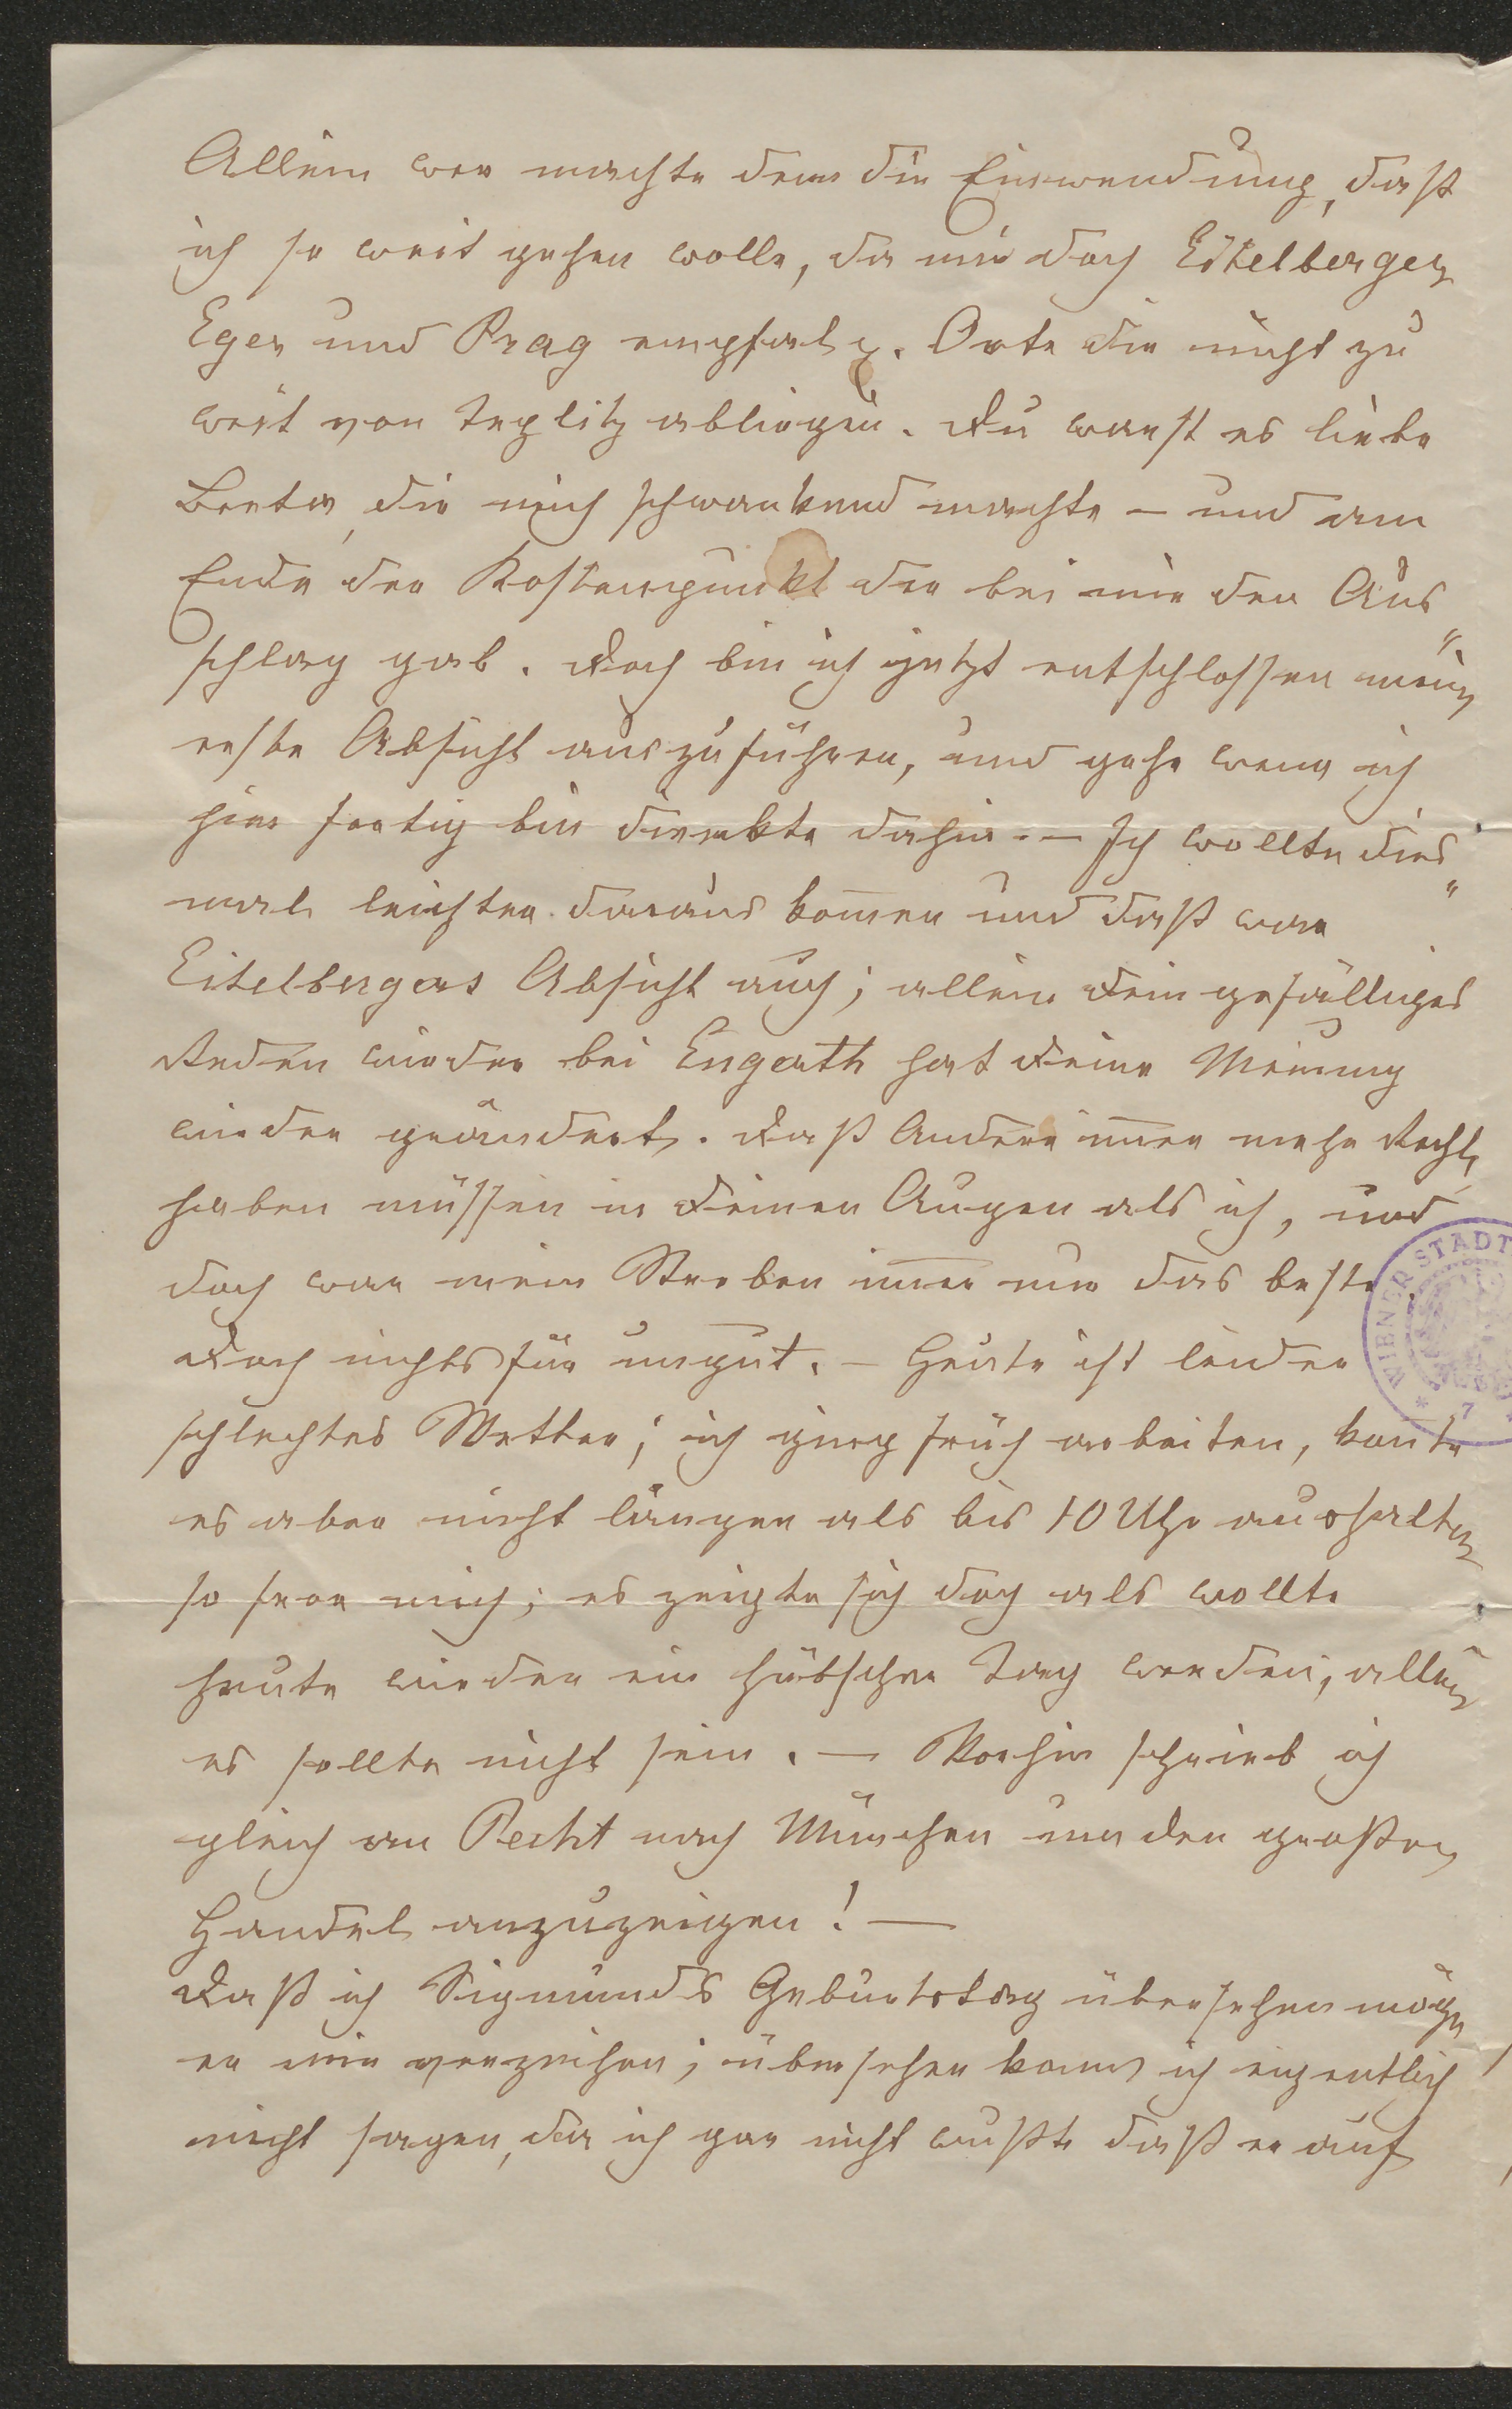 Allein wer machte denn die Einwendung, daß
ich so weit gehen wolle, da mir doch Eitelberger
Eger und Prag empfahl. Orte die nicht zu
weit von Teplitz abliegen. Du warst es liebe
Berta, die mich schwankend machte – und am
Ende der Kostenpunkt der bei mir den Aus„
schlag gab. Doch bin ich jetzt entschlossen meine
erste Absicht auszuführen, und gehe wenn ich
hier fertig bin direkte dahin. – Ich wollte dies„
mal leichter daraus kom̅en und daß war
Eitelbergers Absicht auch; allein Dein gefälliges
Reden wieder bei Engerth hat Deine Meinung
wieder geändert. Daß Andere im̅er mehr Recht
haben müssen in Deinen Augen als ich, und
doch war mein Streben im̅er nur das beste.
Doch nichts für ungut. – Heute ist leider
schlechtes Wetter; ich ging früh arbeiten, konte
es aber nicht länger als bis 10 Uhr aushalten
so fror mich; es zeigte sich doch als wollte
heute wieder ein hübscher Tag werden, allein
es sollte nicht sein. – Vorhin schrieb ich
gleich an Pecht nach München um den großen
Handel anzuzeigen! –
Daß ich Sigmunds Geburtstag übersehen möge
er mir verzeihen; übersehen kann ich eigentlich
nicht sagen, da ich gar nicht wußte daß er auf
WIENER STADT
* 7 *